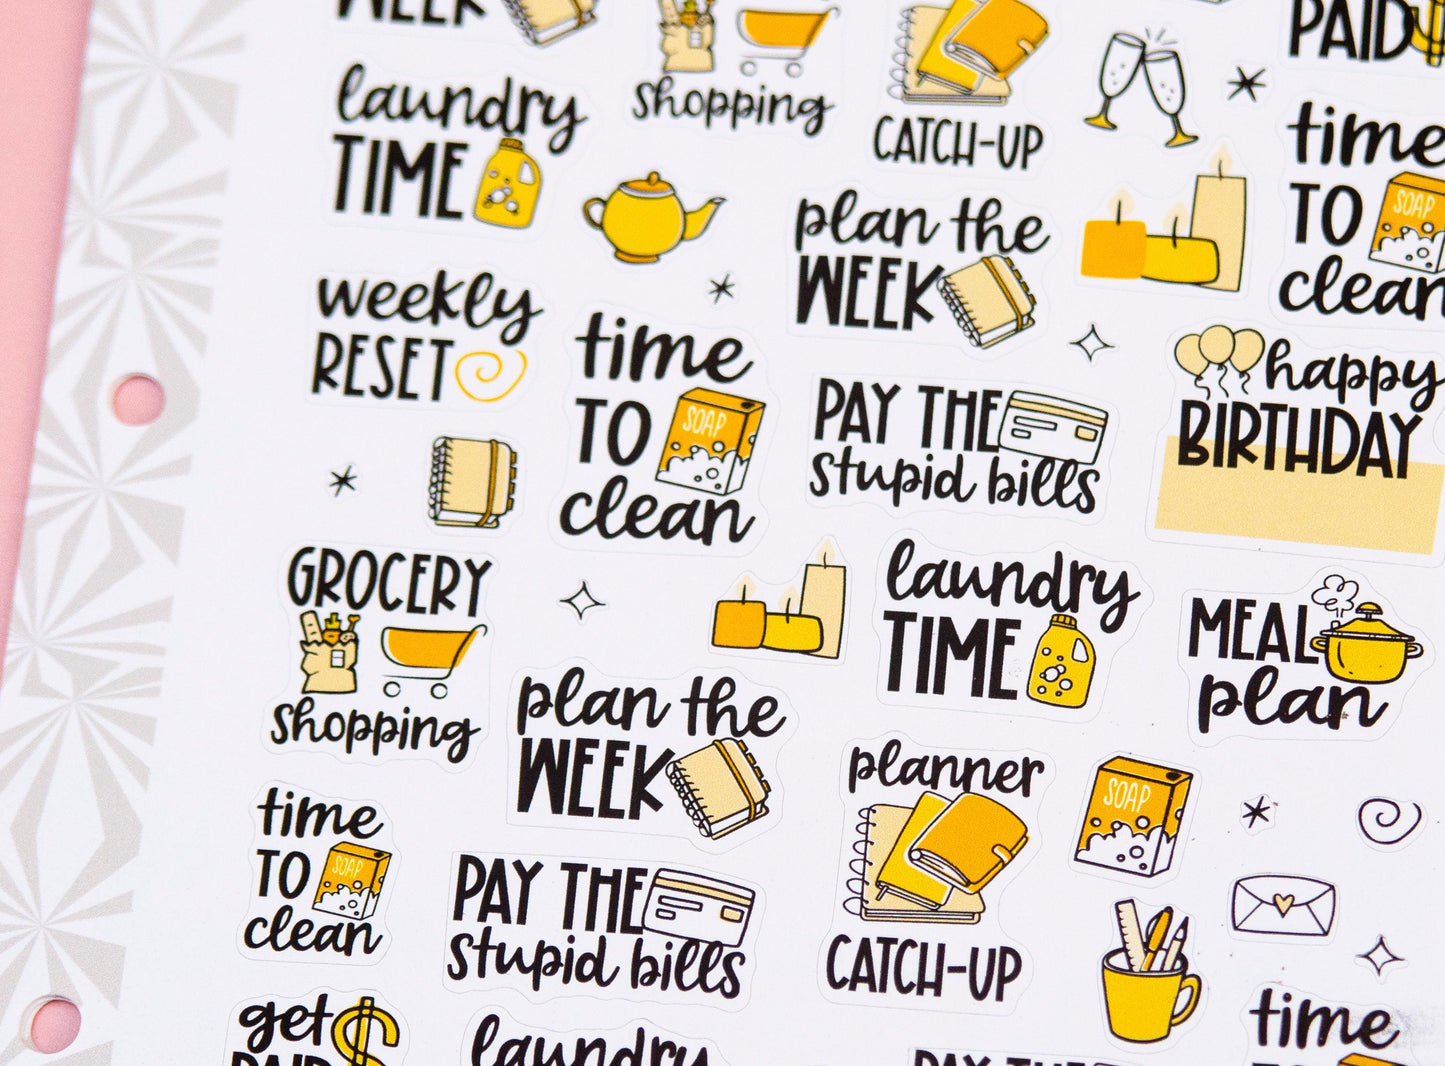 WEEK
shopping
CATCH-UP
PAID
laundry
TIME
time
TO
SOAP
clean
plan the
WEEK
weekly
RESET
time
TO
SOAP
clean
PAY THE
stupid bills
happy
BIRTHDAY
GROCERY
shopping
laundry
TIME
MEAL
plan
plan the
WEEK
planner
CATCH-UP
SOAP
time
TO
SOAP
clean
PAY THE
stupid bills
get
PAID
laundry
PAY THE
time
TO